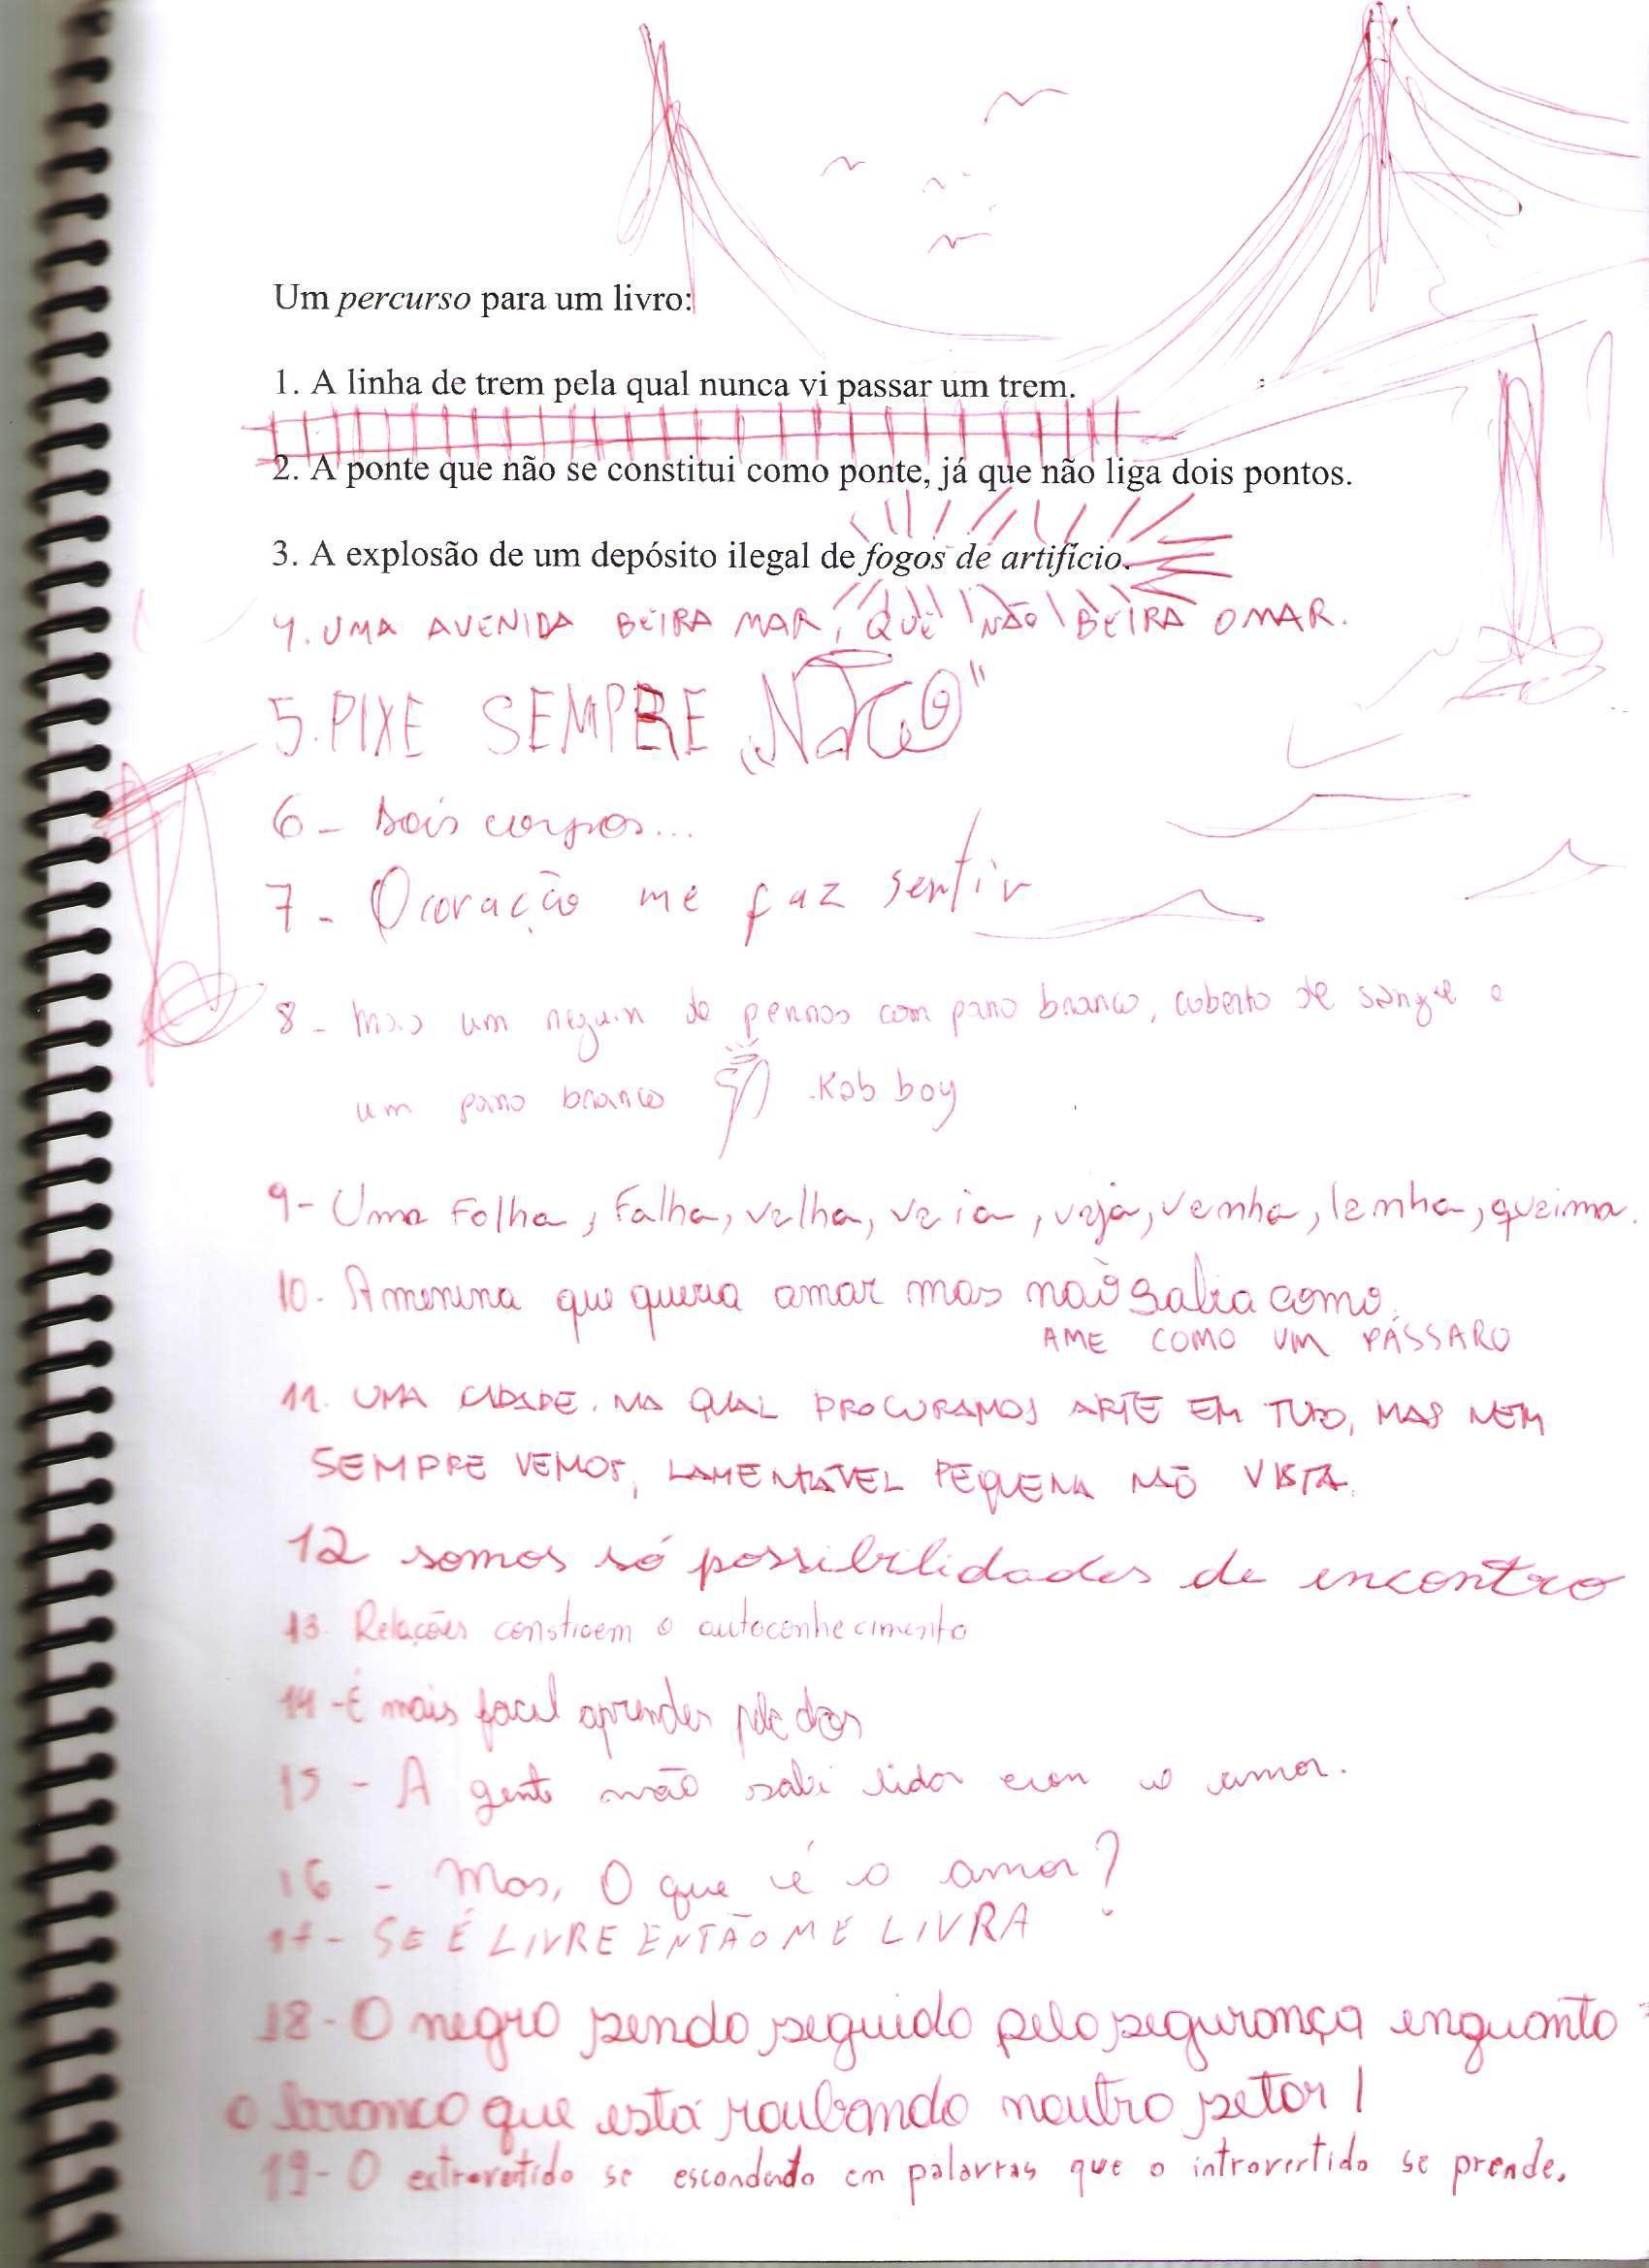 Um percurso para um livro:
1. A linha de trem pela qual nunca vi passar um trem.
2. A ponte que não se constitui como ponte, já que não liga dois pontos.
3. A explosão de um depósito ilegal de fogos de artifício.
4. UMA AVENIDA BEIRA MAR, QUE NÃO BEIRA O MAR.
5. PIXE SEMPRE
6 - Dois corpos...
7 - O coração me faz sentir
8 - Mais um neguin de pernas com pano branco, coberto de sangue e
um pano branco .Kab boy
9 - Uma Folha, Falha, velha, veia, veja, venha, lenha, queima.
10. A menina que queria amar mas não sabia como.
AME COMO UM PÁSSARO
11. UMA CIDADE. NA QUAL PROCURAMOS ARTE EM TUDO, MAS NEM
SEMPRE VEMOS, LAMENTÁVEL PEQUENA NÃO VISTA.
12 somos só possibilidades de encontro
13. Relações constroem o autoconhecimento
14 - É mais facil aprender pela dor
15 - A gente não sabi lidar com o amor.
16 - Mas, O que é o amor?
17 - SE É LIVRE ENTÃO ME LIVRA
18 - O negro sendo seguido pelo segurança enquanto
o branco que está roubando noutro setor!
19 - O extrovertido se escondendo em palavras que o introvertido se prende.